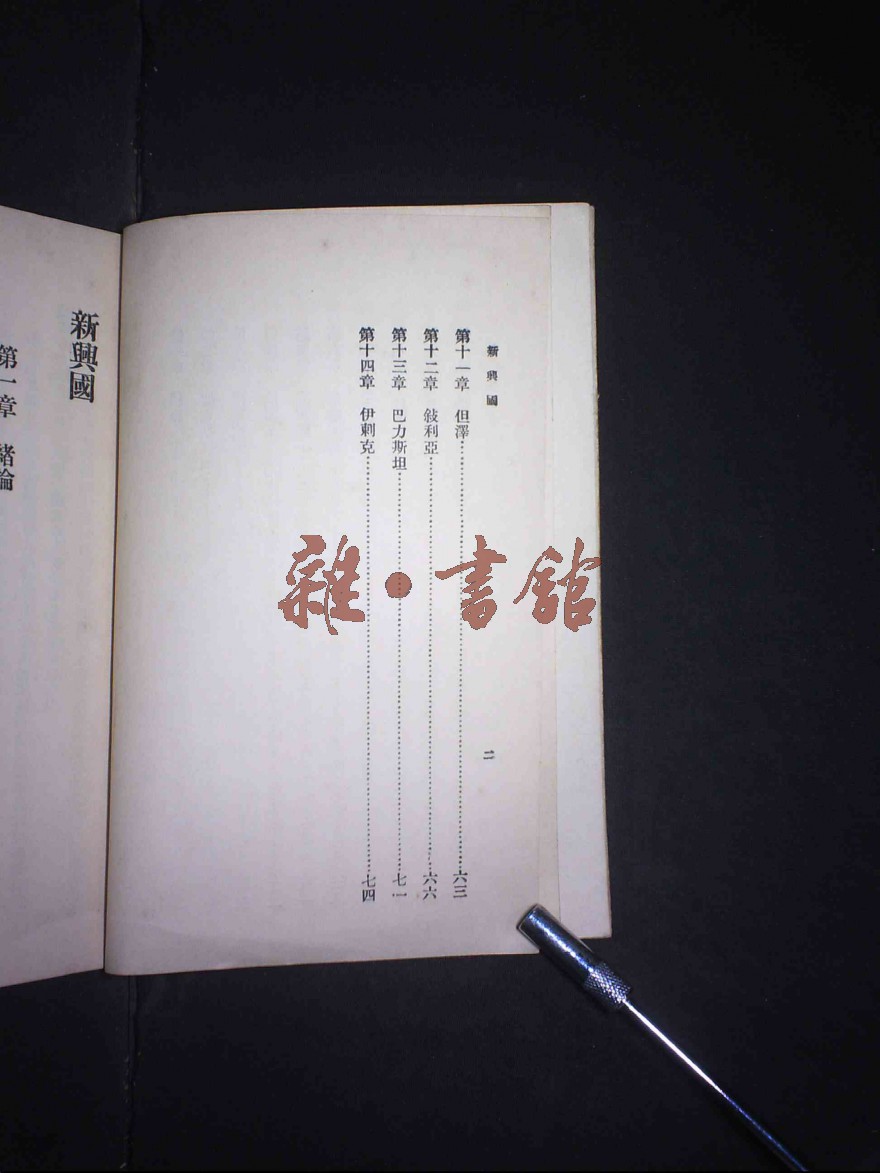 新興國
二
第十一章 但澤……六三
第十二章 敍利亞……六六
第十三章 巴力斯坦……七一
第十四章 伊剌克……七四
新興國
第一章 緒論
雜·書館